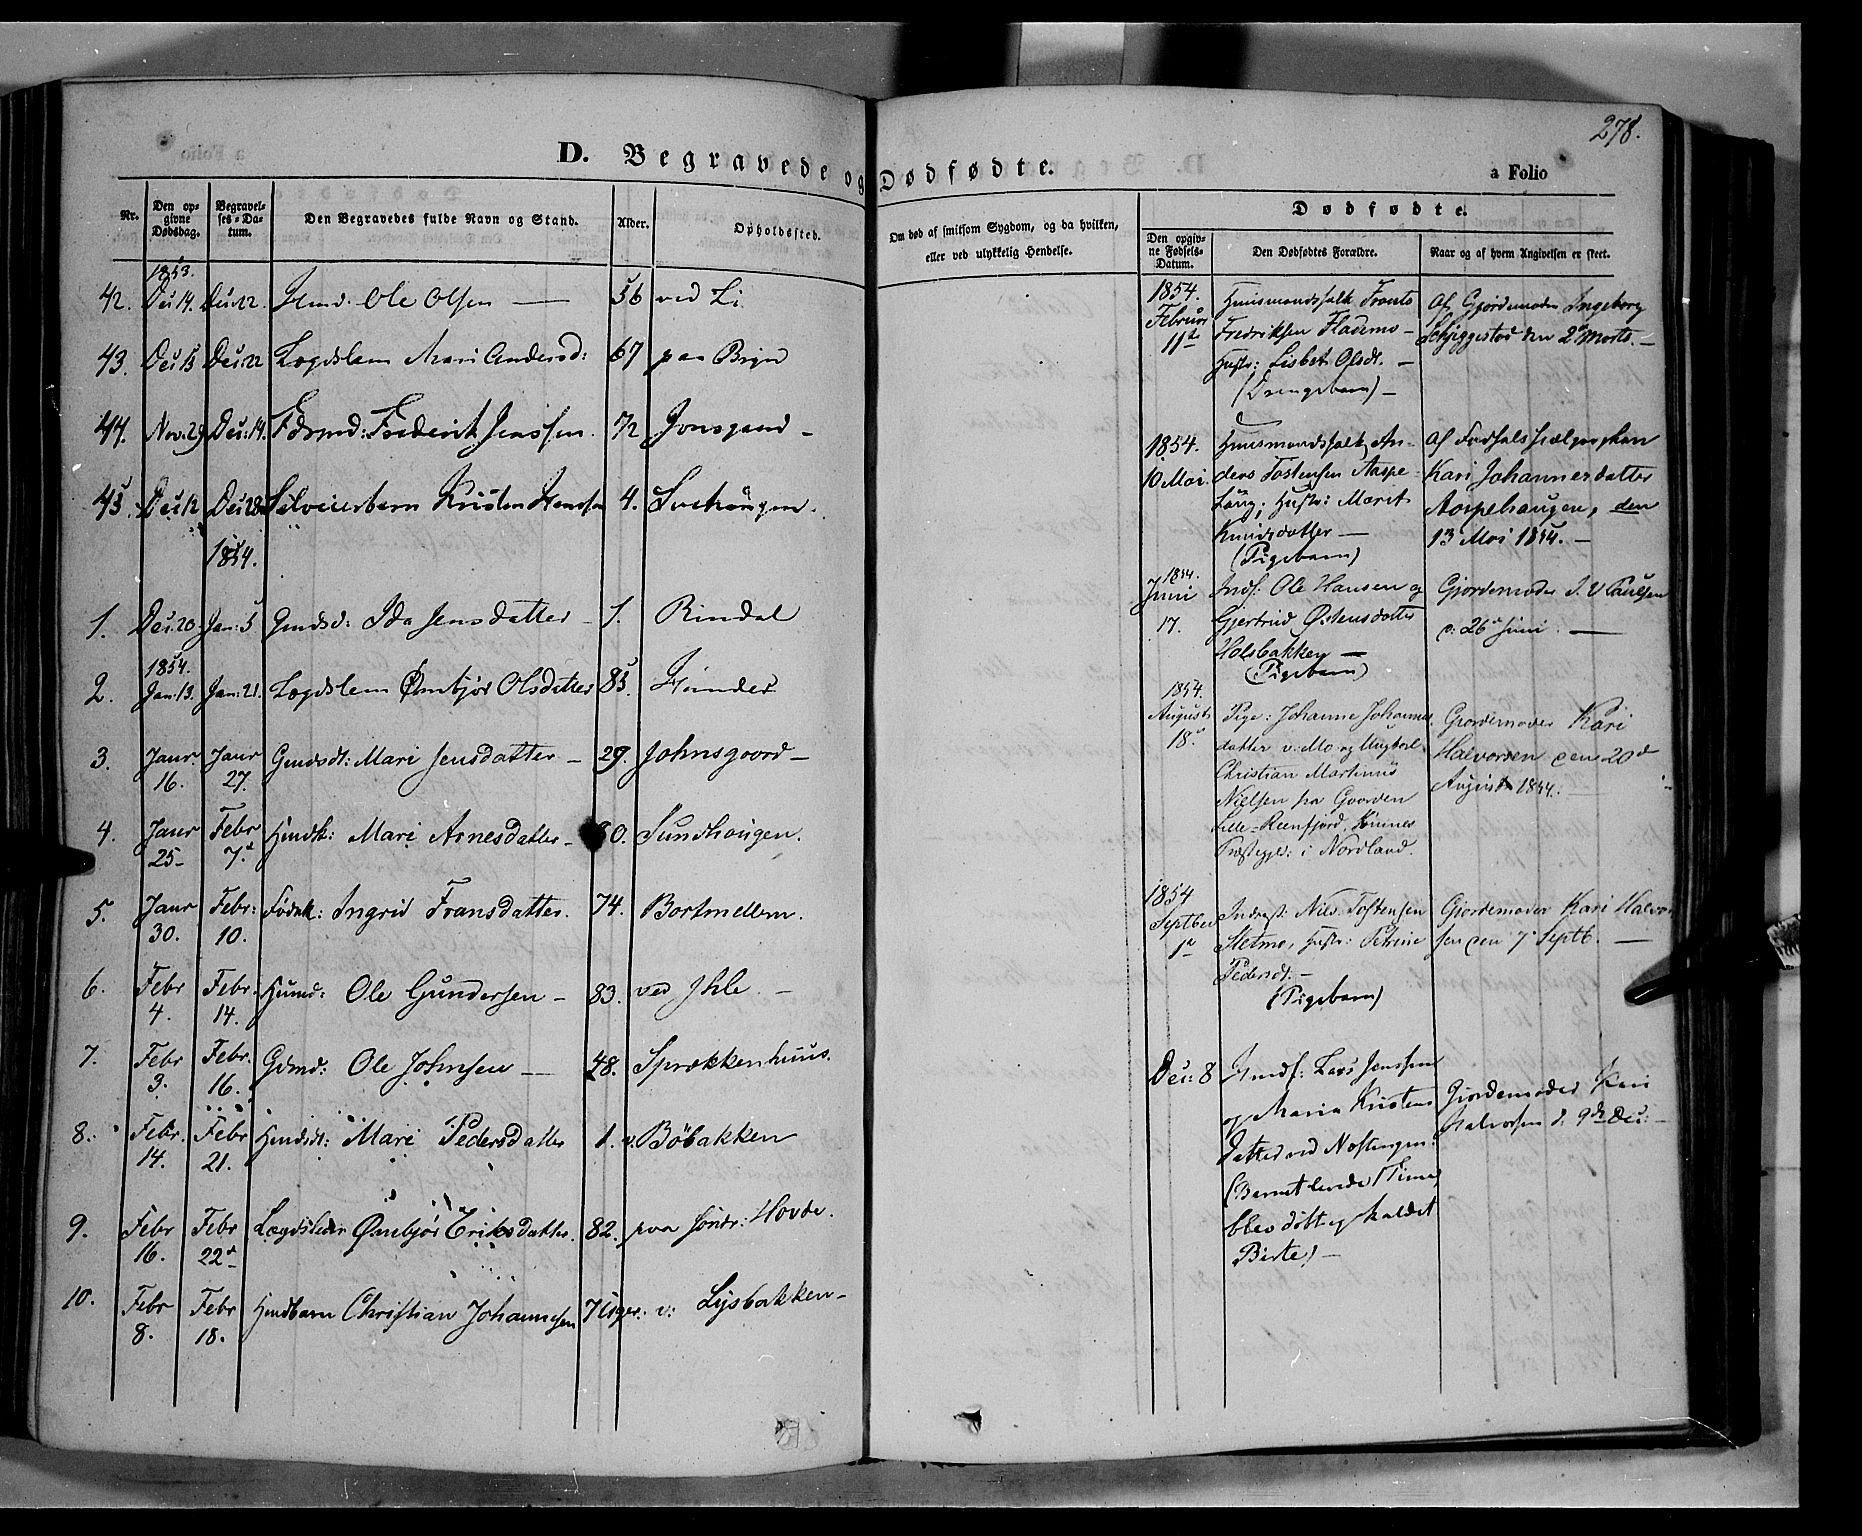 278.
D. Begravede og Dødfødte.
a Folio
Nr.
Den opgivne Dødsdag.
Begravelses-Datum.
Den Begravedes fulde Navn og Stand.
Alder.
Opholdssted.
Om død af smitsom Sygdom, og da hvilken, eller ved ulykkelig Hendelse.
Dødfødte.
Den opgivne Fødsels-Datum.
Den Dødfødtes Forældre.
Naar og af hvem Angivelsen er skeet.
1853.
42. Dec: 14. Dec: 22. Ole Olsen — 56 ved Li
43. Dec: 15 Dec: 22 Lægdslem Mari Andersd: 67 paa
44. Nov: 29 Dec: 14. Frederik Jenssen. 72 Jonsgaard —
45. Dec: 12 Dec: 28 Kristen Hanssen 4.
1854.
1. Dec: 20. Jan: 5 Gmdsd: Ida Jensdatter — 1. Rindal
1854.
2. Jan: 13. Jan: 21. Lægdslem Ømbjør Olsdatter 85. Hunder
3. Janr 16. Janr 27. Gmdsdt: Mari Jensdatter — 29. Johnsgaard —
4. Janr 25 — Febr 7d Hmdk: Mari Arnesdatter — 60. Sundhaugen.
5. Janr 30. Febr: 10. Fødek: Ingrid Fransdatter. 74. Bortmellem.
6. Febr 4. Febr. 14. Humd: Ole Gundersen — 83. ved Ihle. —
7. Febr 3. Febr. 16. Gdmd: Ole Johnsen — 48. Sprækkenhuus.
8. Febr. 14. Febr 21. Hmdsdt: Mari Pedersdatter 1. v. Böbakken
9. Febr 16. Febr 22d Lægdslem Ømbjør Eriksdatter. 82. paa Søndr: Hovde.
10. Febr 8. Febr 18. Hmdbarn Christian Johannesen 7 Uger. v: Lysbakken —
1854.
Februar
11te
Huusmandsfolk Frants
Fredriksen Flademo —
Hustr: Lisbet Olsdt. —
(Drengebarn) —
Af Gjordemoder Ingeborg
den 2d Marts. —
1854.
10 Mai.
Huusmandsfolk An-
ders Tostensen Aaspe-
laug; Hustr: Marit
Knudsdatter —
(Pigebarn)
Af Fødselshjælpersken
Kari Johannesdatter
Aaspehaugen, den
13 Mai 1854. —
1854.
Juni
17.
Indf: Ole Hansen og
Gjertrud Østensdatter
Holsbakken —
(Pigebarn)
Gjordemoder J. V Paulsen
d: 26d Juni. —
1854.
August
18.
Pige: Johanne Johannes-
datter v: Mo og Ungkarl
Christian Martinus
Nielsen fra Gaarden
Lille-Reenfjord,
Præstegjd: i Nordland.
Gjordemoder Kari
Halvorsen den 20d
August 1854. —
1854
Septber
1te
Inderst: Nils Tostensen
Sletmo, Hustr: Petrine
Pedersdt. —
(Pigebarn)
Gjordemoder Kari Halvor-
sen den 7d Septb. —
Dec: 8
Hmdf: Lars Jenssen
og Maria Kristens
datter ved
(Barnet levede 1 Time,
blev døbt og kaldet
Birte) —
Gjordemoder Kari
Halvorsen d. 9de Dec: —